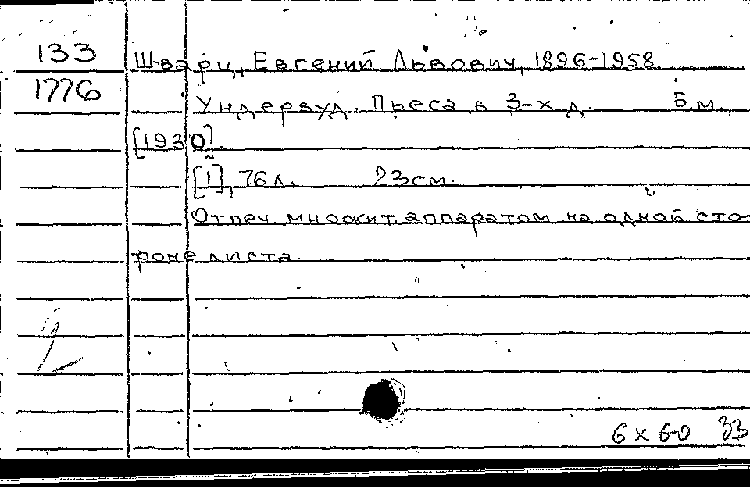 133 Шварц, Евгений Львович, 1896-1958
1776 Ундервуд. Пьеса в 3-х д. Б.м.
[1930].
[1], 76 л. 23 см.
Отпеч. множит. аппаратом на одной сто-
роне листа.
6 х 60 33